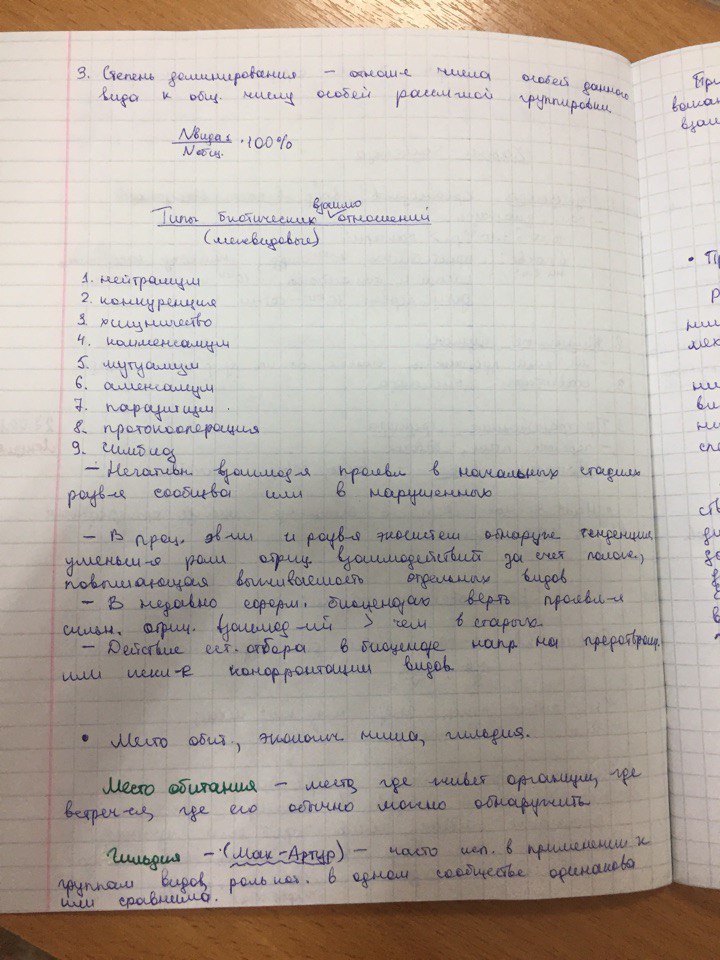 3. Степень доминирования – отнош-е числа особей данного
вида к общ. числу особей рассм-мой группировки
Nвида
Nобщ. · 100%
взаимо
Типы биотических отношений
(межвидовые)
1. нейтрализм
2. конкуренция
3. хищничество
4. комменсализм
5. мутуализм
6. аменсализм
7. паразитизм.
8. протокооперация
9. симбиоз
– Негативн. взаимод-я проявл в начальных стадиях
разв-я сообщества или в нарушенных
– В проц. эв-ии и разв-я экосистем обнаруж. тенденция
уменьш-я роли отриц. взаимодействий за счет полож.,
повышающая выживаемость отдельных видов
– В недавно сформ. биоценозах верть проявл-я
сильн. отриц. взаимод-ий > чем в старых.
– Действие ест. отбора в биоценозе напр на предотвращ.
или конфронтации видов
• Место обит., экологич. ниша, гильдия.
Место обитания – место, где живет организм, где
встреч-ся, где его обычно можно обнаружить
Гильдия – (Мак-Артур) – часто исп. в применении к
группам видов, роль кот. в одном сообществе одинакова
или сравнима.
При
взаи
• Пр
р
ни
меж
ни
ви
ни
спо
ств
ди
до
в